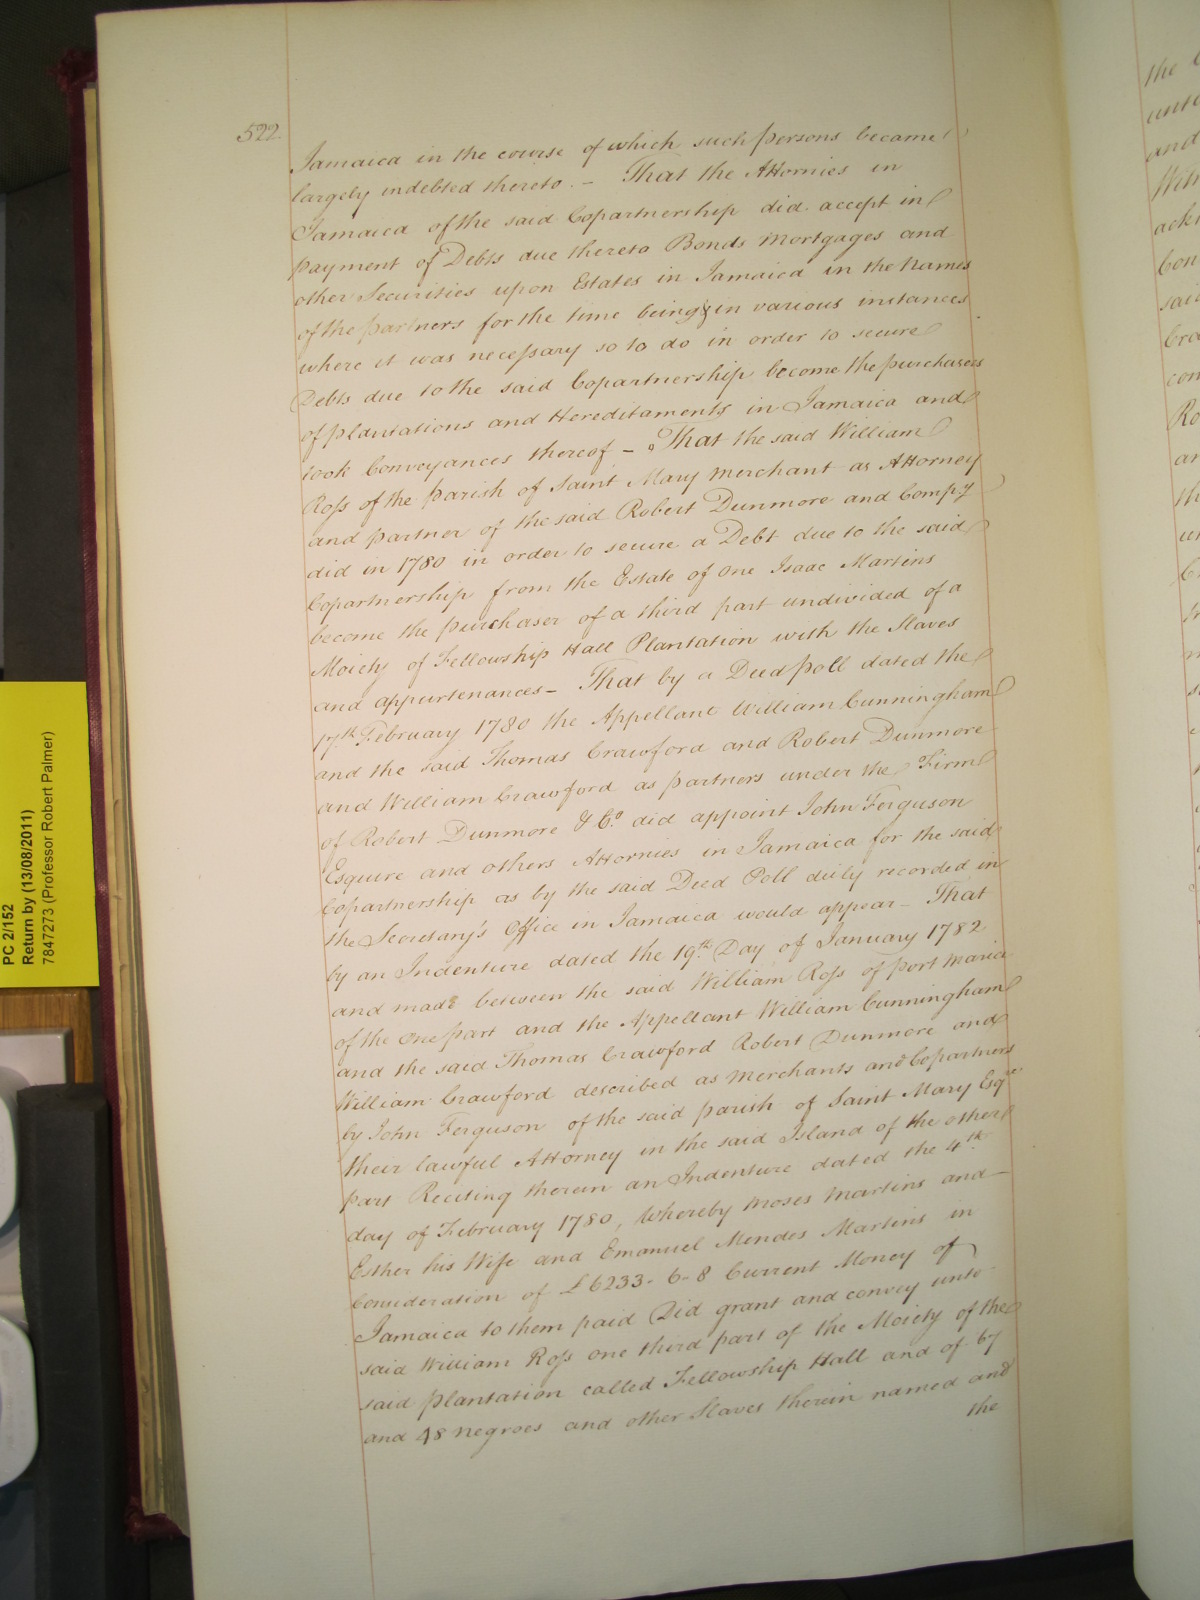 522
Jamaica in the course of which such persons became
largely indebted thereto. – That the Attornies in
Jamaica of the said Copartnership did accept in
payment of Debts due thereto Bonds Mortgages and
other Securities upon Estates in Jamaica in the Names
of the partners for the time being & in various instances
where it was necessary so to do in order to secure
Debts due to the said Copartnership become the purchasers
of plantations and Hereditaments in Jamaica and
took Conveyances thereof – That the said William
Ross of the parish of Saint Mary Merchant as Attorney
and partner of the said Robert Dunmore and Compy
did in 1780 in order to secure a Debt due to the said
Copartnership from the Estate of one Isaac Martins
become the purchaser of a third part undivided of a
Moiety of Fellowship Hall Plantation with the Slaves
and appurtenances – That by a Deed poll dated the
17th February 1780 the Appellant William Cunningham
and the said Thomas Crawford and Robert Dunmore
and William Crawford as partners under the Firm
of Robert Dunmore & Co. did appoint John Ferguson
Esquire and others Attornies in Jamaica for the said
Copartnership as by the said Deed Poll duly recorded in
the Secretary's Office in Jamaica would appear – That
by an Indenture dated the 19th Day of January 1782
and made between the said William Ross of port Maria
of the one part and the Appellant William Cunningham
and the said Thomas Crawford Robert Dunmore and
William Crawford described as Merchants and Copartners
by John Ferguson of the said parish of Saint Mary Esqre
their lawful Attorney in the said Island of the other
part Reciting therein an Indenture dated the 4th
day of February 1780, Whereby Moses Martins and
Esther his Wife and Emanuel Mendes Martins in
Consideration of £6233-6-8 Current Money of
Jamaica to them paid Did grant and convey unto
said William Ross one third part of the Moiety of the
said plantation called Fellowship Hall and of 67
and 48 negroes and other Slaves therein named and
the
PC 2/152
Return by (13/08/2011)
7847273 (Professor Robert Palmer)
the
and
said
the